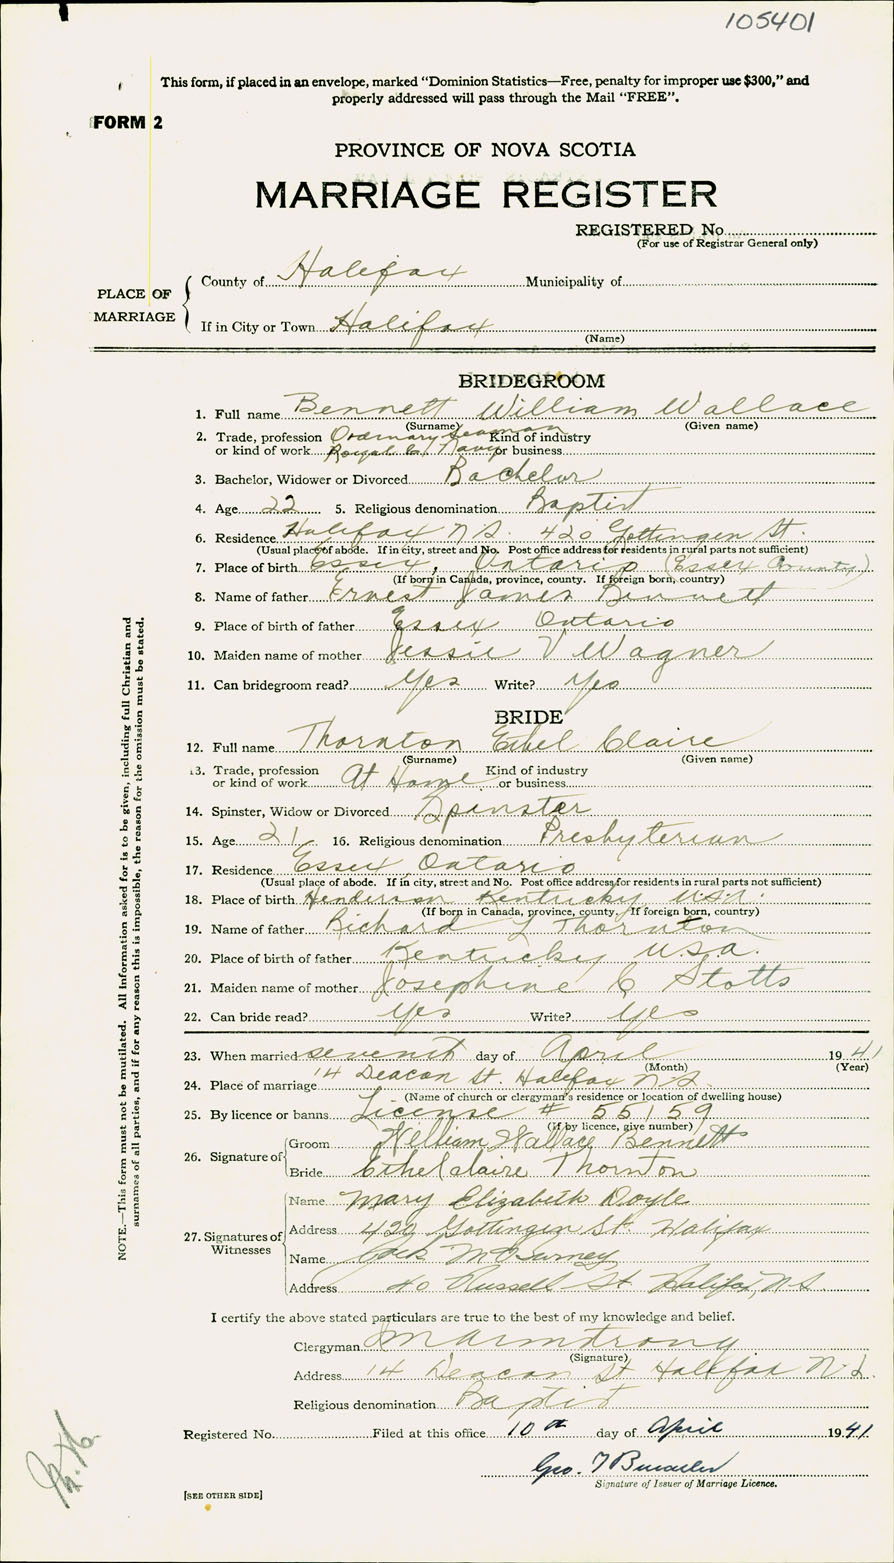 105401
This form, if placed in an envelope, marked "Dominion Statistics—Free, penalty for improper use $300," and
properly addressed will pass through the Mail "FREE".
FORM 2
PROVINCE OF NOVA SCOTIA
MARRIAGE REGISTER
REGISTERED No.
(For use of Registrar General only)
PLACE OF MARRIAGE
County of Halifax Municipality of
If in City or Town Halifax
(Name)
BRIDEGROOM
1. Full name Bennett William Wallace
(Surname) (Given name)
2. Trade, profession or kind of work Ordinary Seaman Royal C. Navy Kind of industry or business
3. Bachelor, Widower or Divorced Bachelor
4. Age 22 5. Religious denomination Baptist
6. Residence Halifax N S. 420 Gottingen St.
(Usual place of abode. If in city, street and No. Post office address for residents in rural parts not sufficient)
7. Place of birth Essex, Ontario (Essex County)
(If born in Canada, province, county. If foreign born, country)
8. Name of father Ernest James Bennett
9. Place of birth of father Essex Ontario
10. Maiden name of mother Jessie V Wagner
11. Can bridegroom read? Yes Write? Yes
BRIDE
12. Full name Thornton Ethel Claire
(Surname) (Given name)
13. Trade, profession or kind of work At Home Kind of industry or business
14. Spinster, Widow or Divorced Spinster
15. Age 21 16. Religious denomination Presbyterian
17. Residence Essex Ontario
(Usual place of abode. If in city, street and No. Post office address for residents in rural parts not sufficient)
18. Place of birth Henderson Kentucky U.S.A.
(If born in Canada, province, county. If foreign born, country)
19. Name of father Richard L Thornton
20. Place of birth of father Kentucky U.S.A.
21. Maiden name of mother Josephine C Stotts
22. Can bride read? Yes Write? Yes
23. When married seventh day of April 1941
(Month) (Year)
24. Place of marriage 14 Deacon St. Halifax N S.
(Name of church or clergyman's residence or location of dwelling house)
25. By licence or banns License # 55159
(If by licence, give number)
26. Signature of
Groom William Wallace Bennett
Bride Ethel Claire Thornton
27. Signatures of Witnesses
Name Mary Elizabeth Doyle
Address 420 Gottingen St. Halifax
Name Jack McBurney
Address 40 Russell St. Halifax, N.S.
I certify the above stated particulars are true to the best of my knowledge and belief.
Clergyman Armstrong
(Signature)
Address 14 Deacon St Halifax N.S.
Religious denomination Baptist
Registered No. Filed at this office 10th day of April 1941.
Geo. T
Signature of Issuer of Marriage Licence.
[SEE OTHER SIDE]
NOTE.—This form must not be mutilated. All Information asked for is to be given, including full Christian and
surnames of all parties, and if for any reason this is impossible, the reason for the omission must be stated.